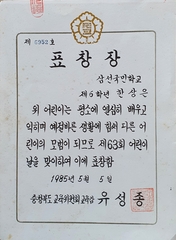 제 1952 호
표창장
삼선국민학교
제6학년 한상은
위 어린이는 평소에 열심히 배우고
익히며 예절바른 생활에 힘써 다른 어
린이의 모범이 되므로 제63회 어린이
날을 맞이하여 이에 표창함
1985년 5월 5일
충청북도 교육위원회 교육감 유성종